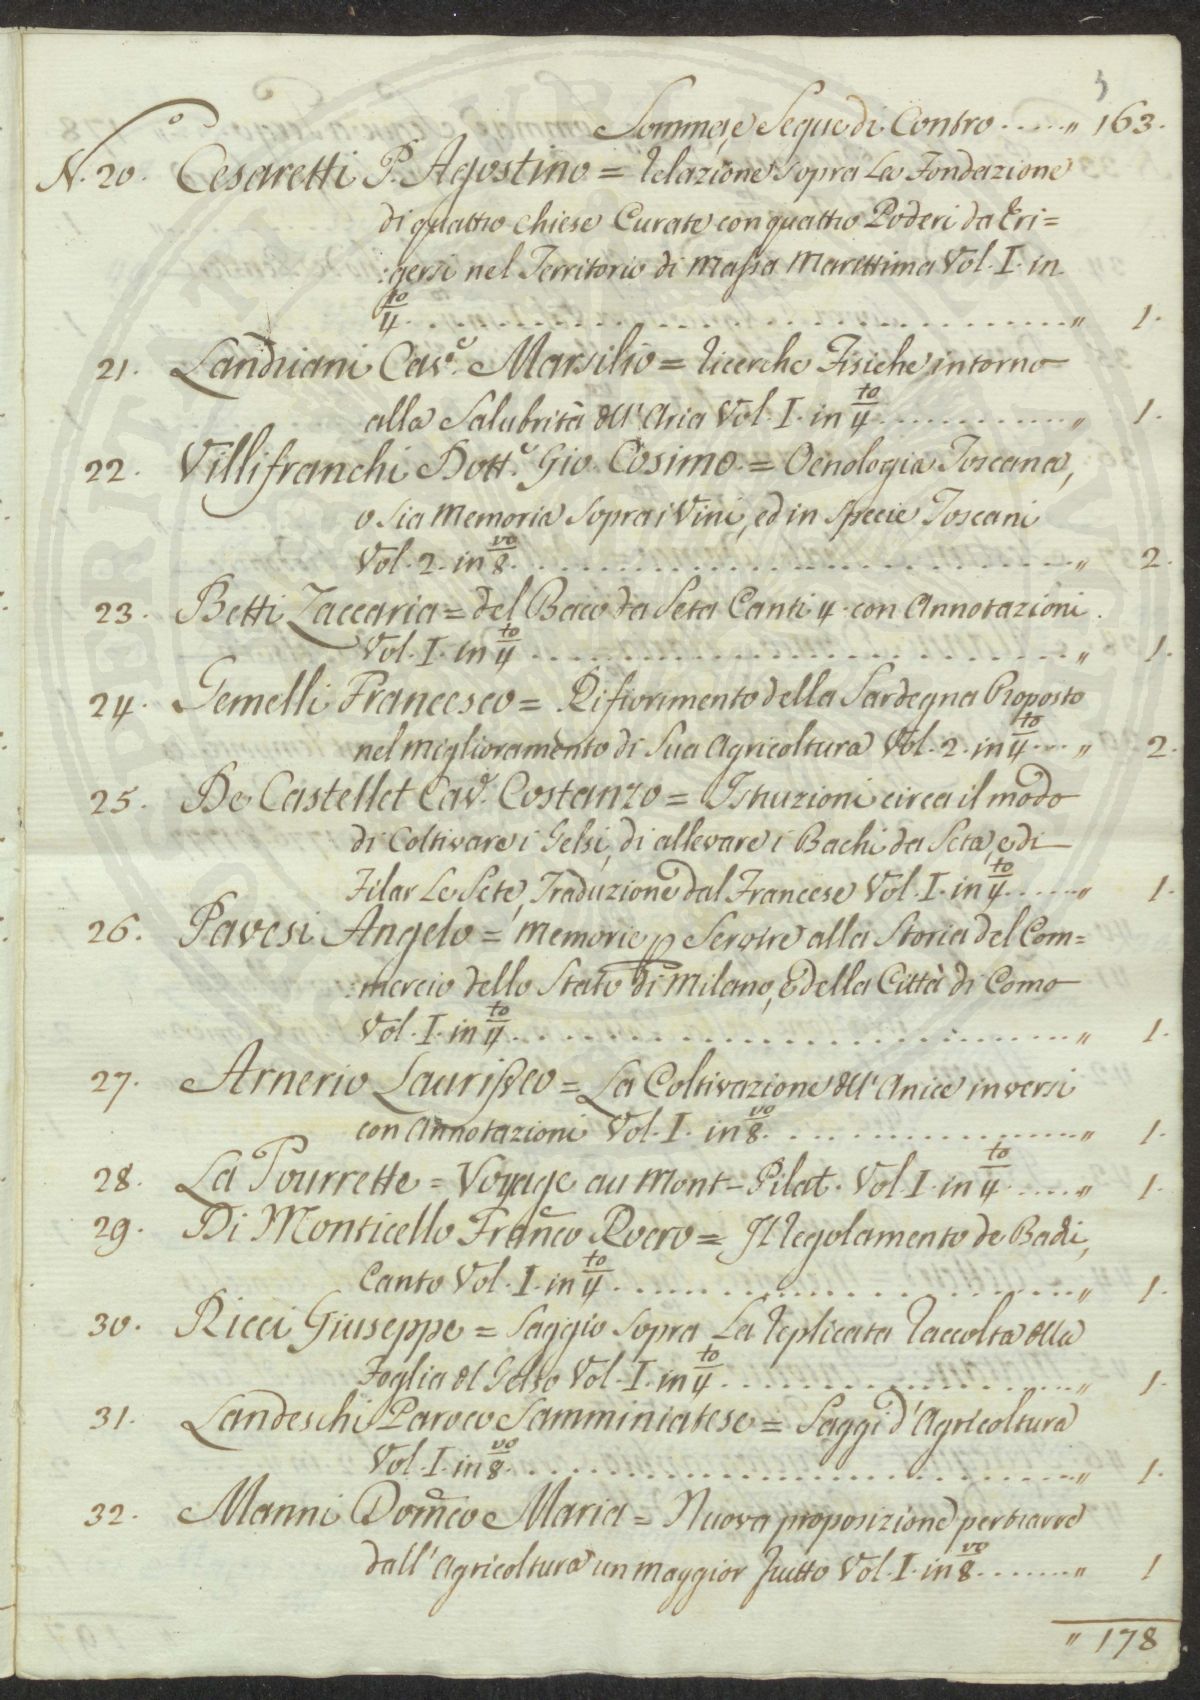 3
Somma, e Segue di Contro ..... " 163.
N.º 20. Cesaretti P. Agostino = Relazione Sopra La Fondazione
di quattro chiese Curate con quattro Poderi da Eri=
:gersi nel Territorio di Massa Marittima Vol. I. in
4.to .................... " 1.
21. Landriani Cav.e Marsilio = Ricerche Fisiche intorno
alla Salubrità dell'Aria Vol. I. in 4.to .......... " 1.
22. Villifranchi Dott.e Gio. Cosimo = Oenologia Toscana,
o Sia Memoria Sopra i Vini, ed in Specie Toscani
Vol. 2. in 8.vo .................... " 2.
23. Betti Zaccaria = del Baco da Seta Canti 4. con Annotazioni.
Vol. I. in 4.to .................... " 1.
24. Gemelli Francesco = Rifiorimento della Sardegna Proposto
nel miglioramento di Sua Agricoltura Vol. 2. in 4.to ... " 2.
25. De Castellet Cav.e Costanzo = Istruzioni circa il modo
di Coltivare i Gelsi, di allevare i Bachi da Seta, e di
Filar Le Sete, Traduzione dal Francese Vol. I. in 4.to ..... " 1.
26. Pavesi Angelo = Memorie p Servire alla Storia del Com=
:mercio dello Stato di Milano, e della Città di Como
Vol. I. in 4.to .................... " 1.
27. Arnerio Laurisseo = La Coltivazione dell'Anice in versi
con Annotazioni Vol. I. in 8.vo .............. " 1.
28. La Tourrette = Voyage au Mont-Pilat. Vol. I. in 4.to ..... " 1.
29. Di Monticello Fran.co Roero = Il Regolamento de Badi,
Canto Vol. I. in 4.to .................... " 1.
30. Ricci Giuseppe = Saggio Sopra La Replicata Raccolta della
Foglia del Gelso Vol. I. in 4.to .............. " 1.
31. Landeschi Paroco Samminiatese = Saggi d'Agricoltura
Vol. I. in 8.vo .................... " 1.
32. Manni Dom.co Maria = Nuova proposizione per trarre
dall'Agricoltura un maggior frutto Vol. I. in 8.vo ....... " 1
" 178